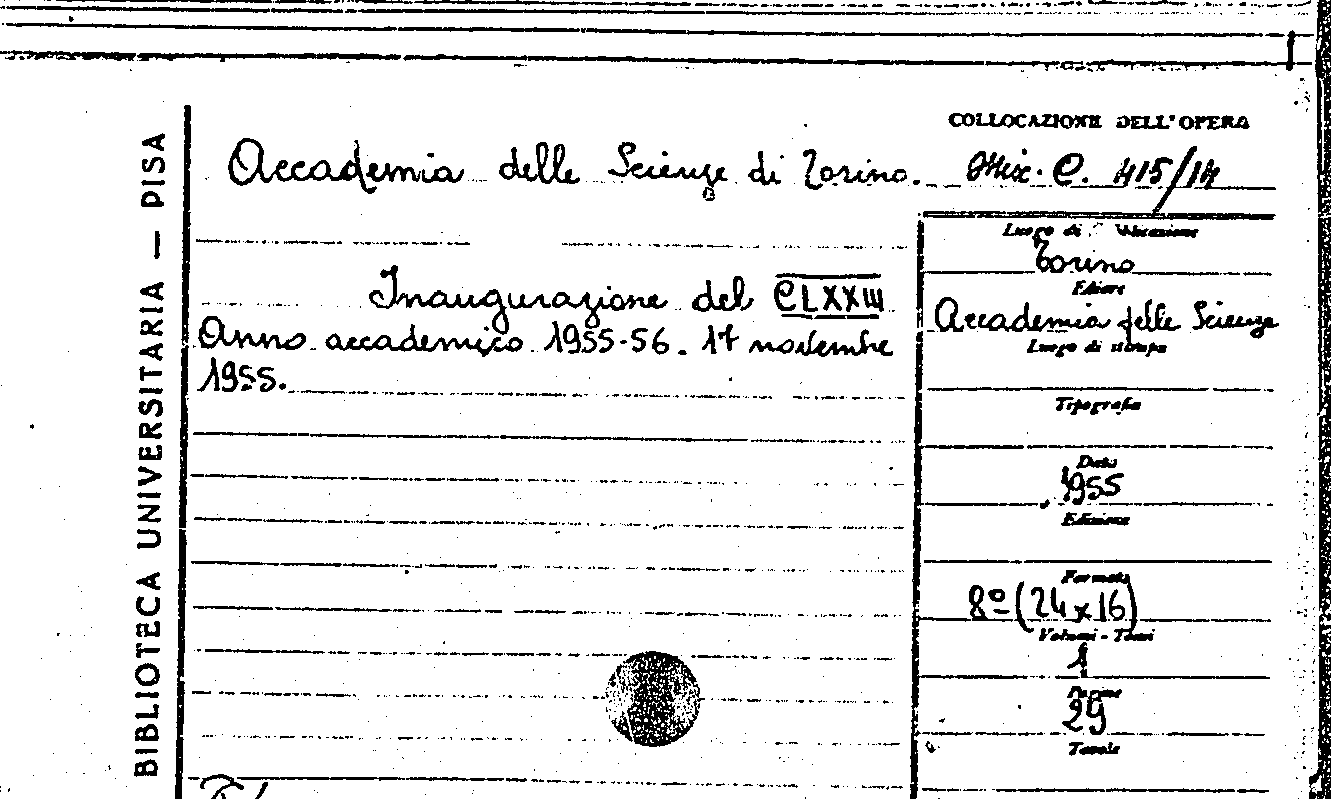 BIBLIOTECA UNIVERSITARIA — PISA
COLLOCAZIONE DELL'OPERA
Accademia delle Scienze di Torino. Misc. C. 415/14
Luogo di
Torino
Editore
Accademia delle Scienze
Luogo di stampa
Tipografia
Data
1955
Edizione
Formato
8º (24 x 16)
Volumi - Tomi
1
Pagine
29
Tavole
Inaugurazione del CLXXIII
Anno accademico 1955-56. 17 novembre
1955.